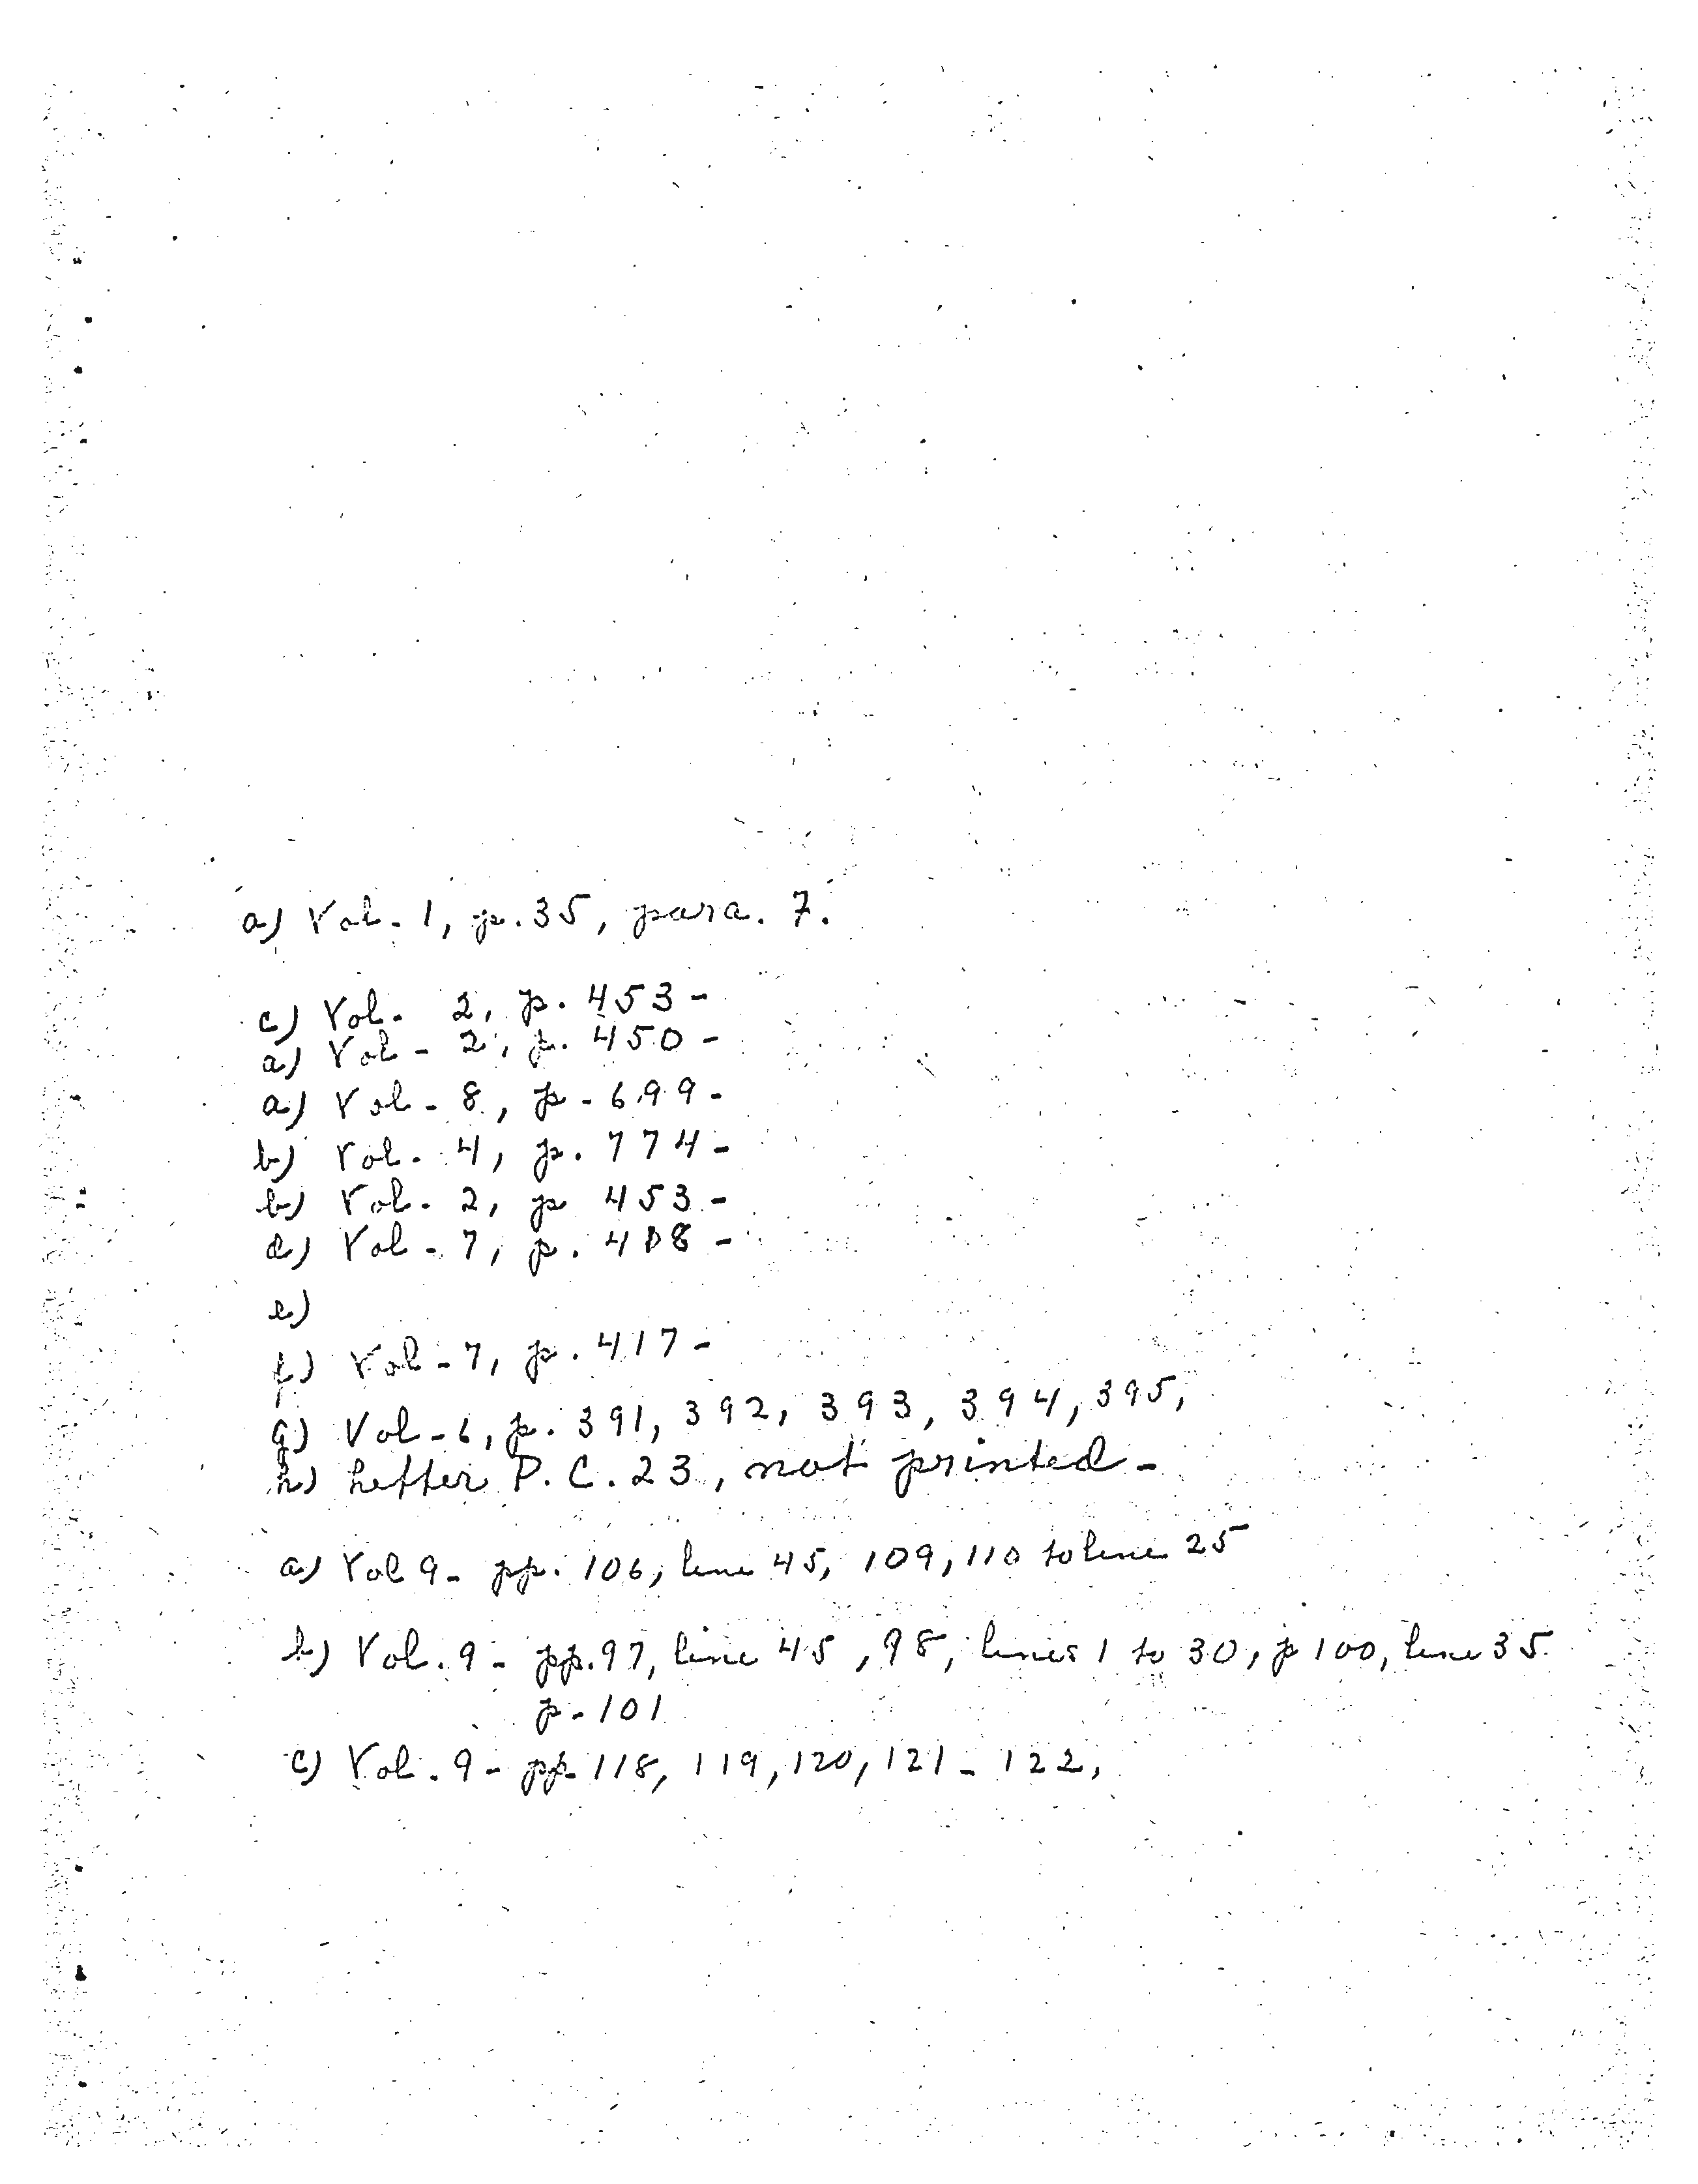 a) Vol. 1, p. 35, para. 7.
c) Vol. 2, p. 453 -
a) Vol - 2, p. 450 -
a) Vol - 8, p - 699 -
b) Vol. 4, p. 774 -
b) Vol. 2, p 453 -
d) Vol - 7, p. 408 -
e)
f) Vol - 7, p. 417 -
g) Vol - 6, p. 391, 392, 393, 394, 395,
h) Letter P.C. 23, not printed -
a) Vol 9 - pp. 106, line 45, 109, 110 to line 25
b) Vol. 9 - pp. 97, line 45, 98, lines 1 to 30, p 100, line 35.
p - 101
c) Vol. 9 - pp 118, 119, 120, 121 - 122,